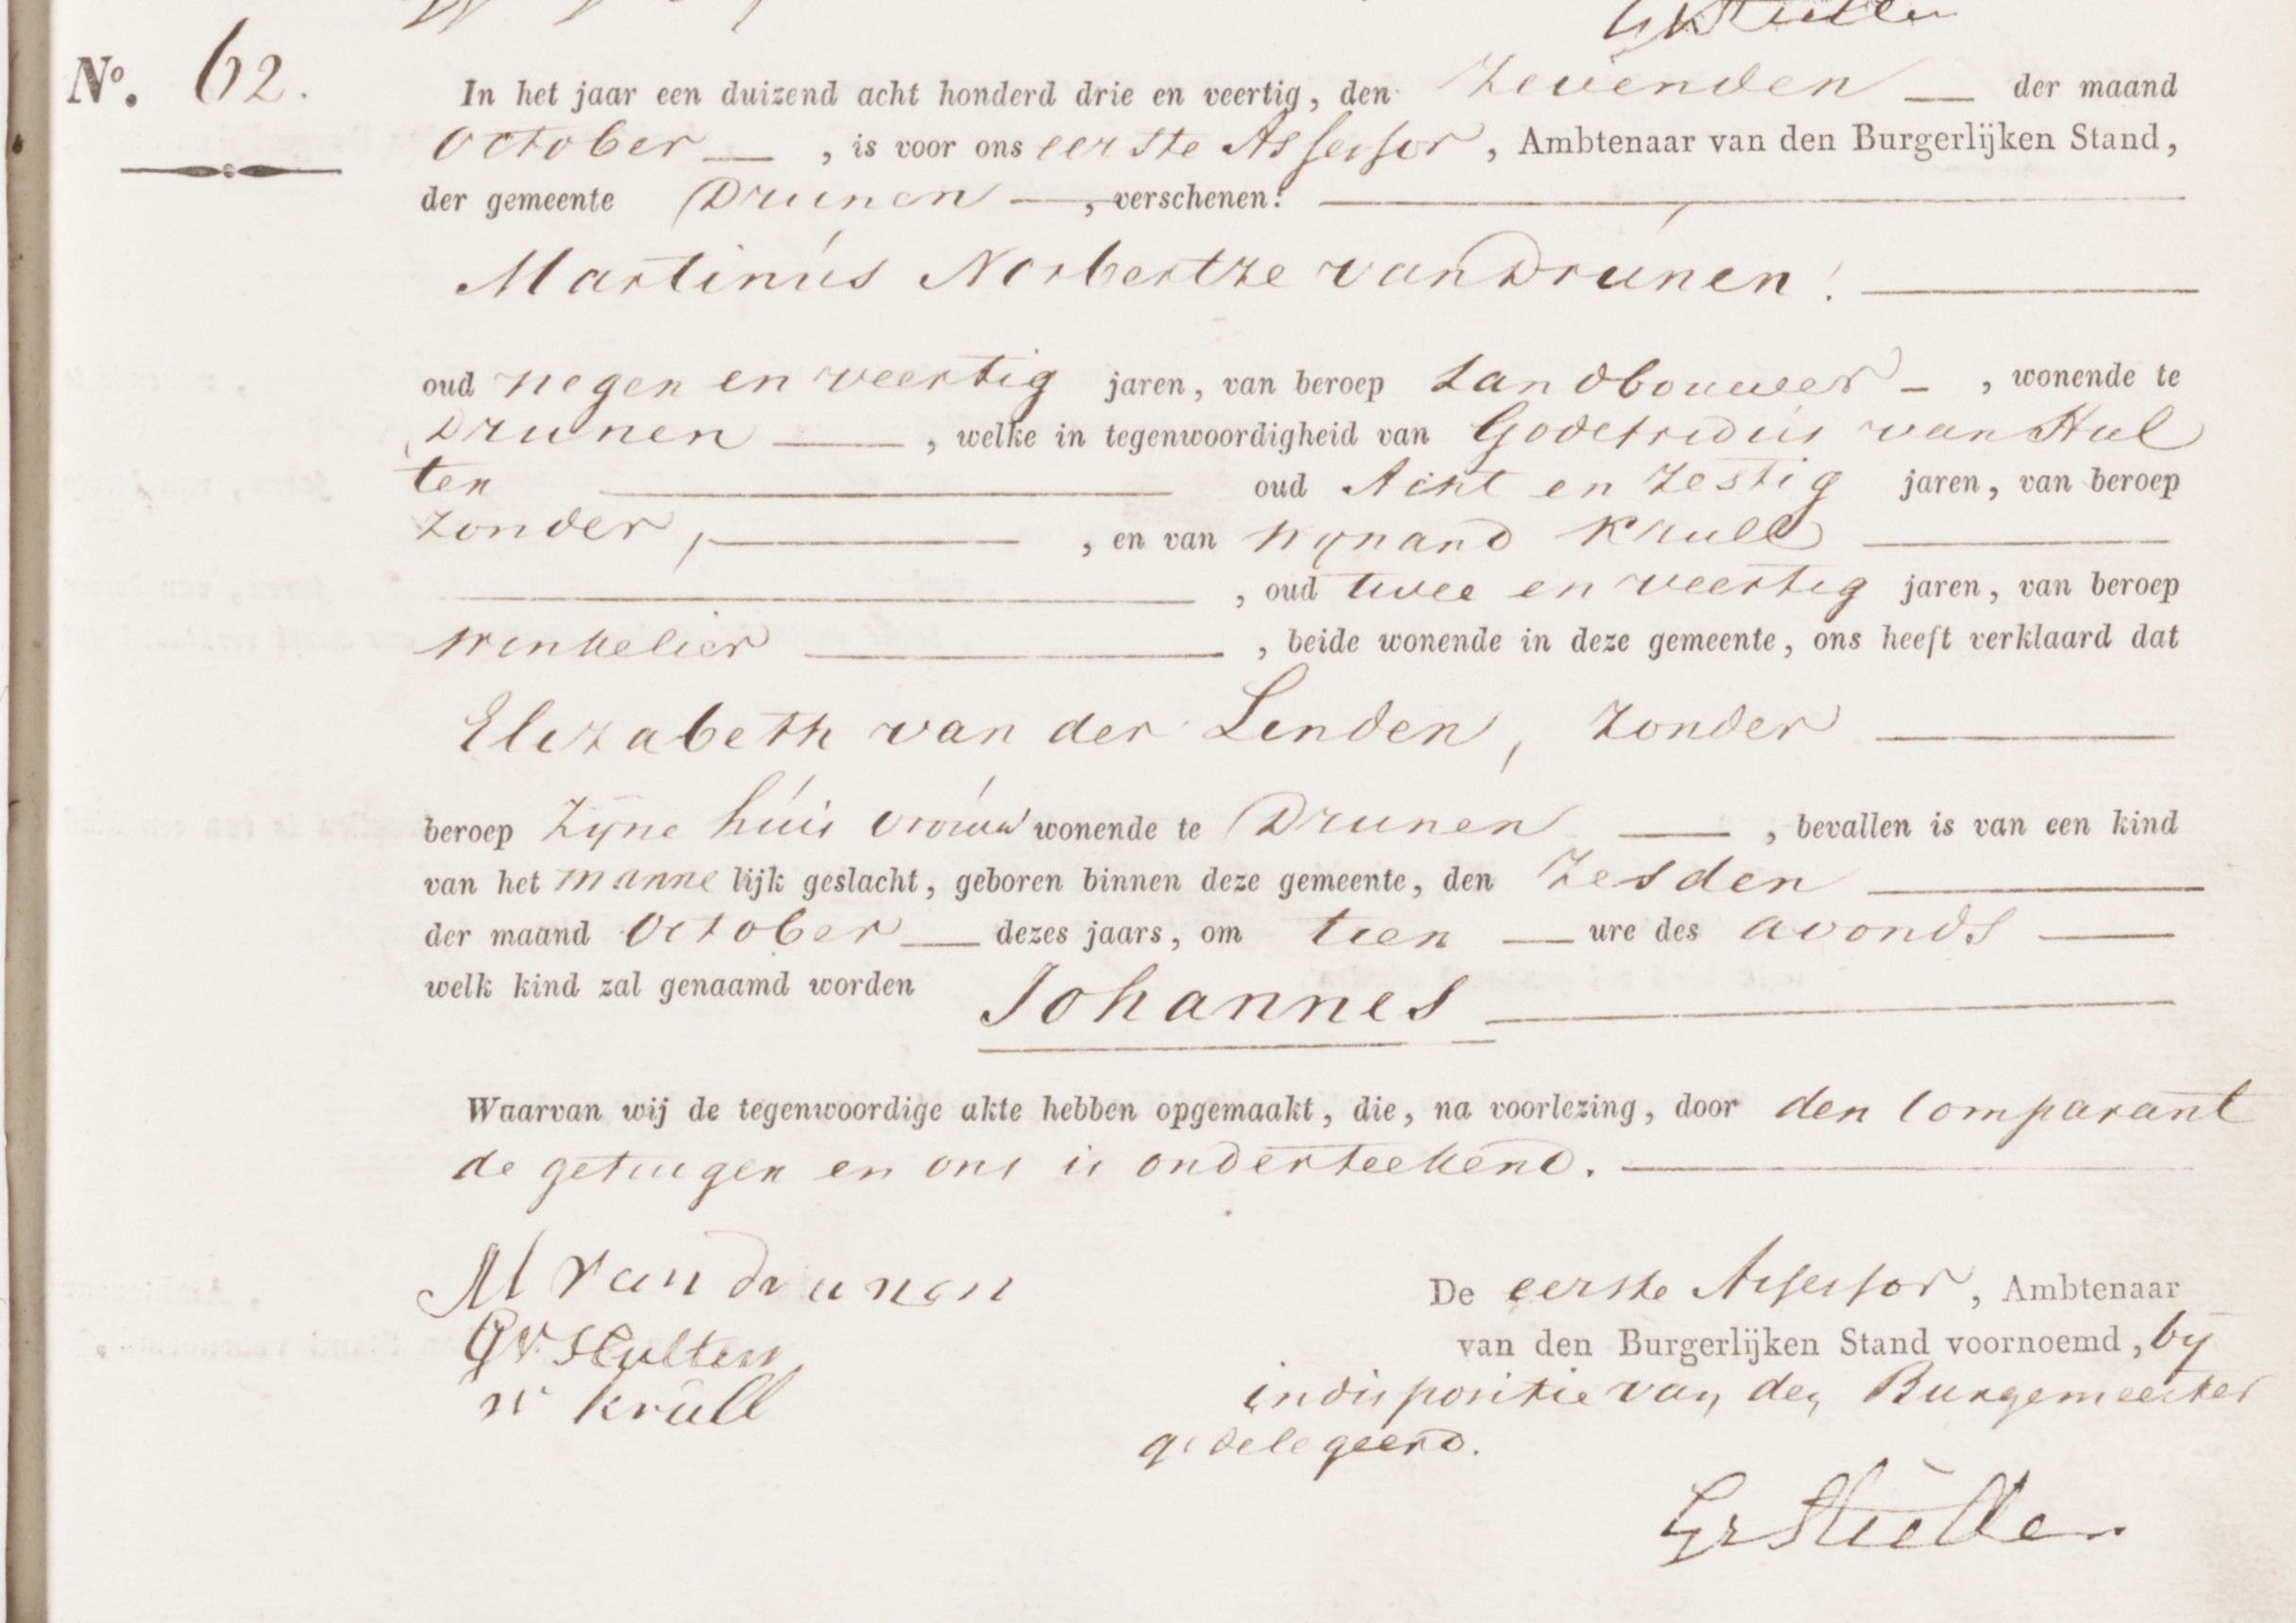 No. 62.
In het jaar een duizend acht honderd drie en veertig, den zevenden der maand
October, is voor ons eerste Assessor, Ambtenaar van den Burgerlijken Stand,
der gemeente Drunen, verschenen:
Martinus Norbertze van Drunen!
oud negen en veertig jaren, van beroep Landbouwer, wonende te
Drunen, welke in tegenwoordigheid van Godefridus van Hul
ten oud Acht en zestig jaren, van beroep
zonder, en van Wynand Krull
, oud twee en veertig jaren, van beroep
winkelier, beide wonende in deze gemeente, ons heeft verklaard dat
Elizabeth van der Linden, zonder
beroep zyne huis vrouw wonende te Drunen, bevallen is van een kind
van het mannelijk geslacht, geboren binnen deze gemeente, den zesden
der maand October dezes jaars, om tien ure des avonds
welk kind zal genaamd worden Johannes
Waarvan wij de tegenwoordige akte hebben opgemaakt, die, na voorlezing, door den comparant
de getuigen en ons is onderteekend.
M van drunen
G v Hulten
W Krull
De eerste Assessor, Ambtenaar
van den Burgerlijken Stand voornoemd, by
indispositie van den Burgemeester
gedelegeerd.